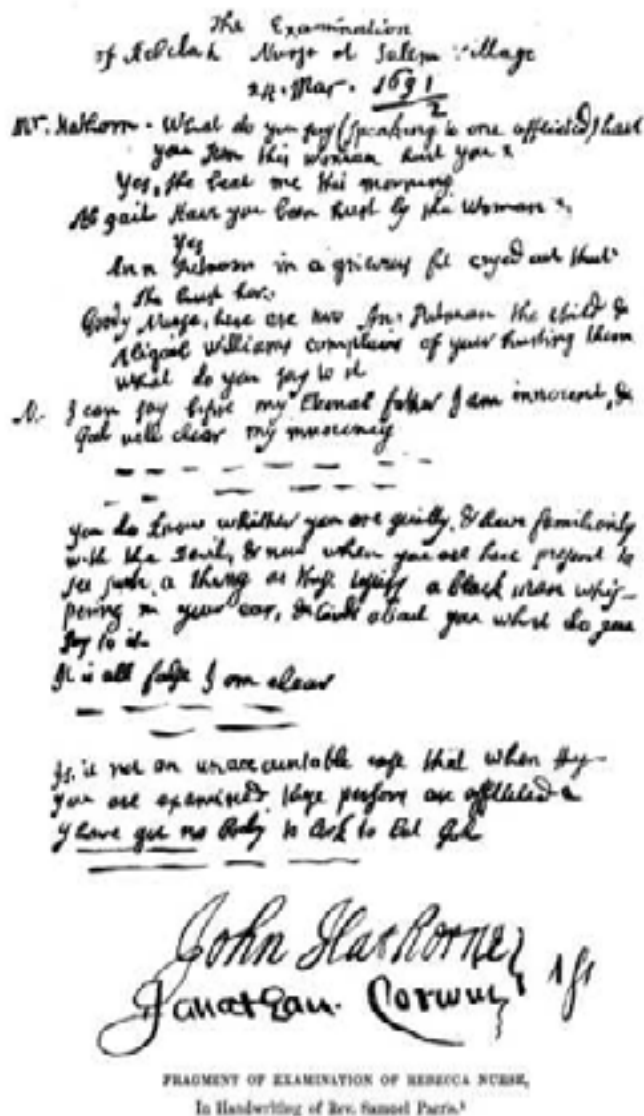 The Examination
of Rebekah Nurse of Salem Village
24. Mar. 1691
2
Mr. Hathorn. What do you say (speaking to one afflicted) have
you seen this woman hurt you?
Yes, she beat me this morning
Abigail Have you been hurt by this Woman?
Yes
Ann Putnam in a grievous fit cryed out that
she hurt her.
Goody Nurse, here are two An: Putnam the child &
Abigail Williams complains of your hurting them
What do you say to it
N. I can say before my Eternal father I am innocent, &
God will clear my innocency
You do know whither you are guilty, & have familiarity
with the Devil, & now when you are here present to
see such a thing as these testify a black man whis-
pering in your ear, & birds about you what do you
say to it
It is all false I am clear
Is it not an unaccountable case that when
you are examined these persons are afflicted?
I have got no body to look to but God
John Hathorne
Jonathan Corwin
FRAGMENT OF EXAMINATION OF REBECCA NURSE,
In Handwriting of Rev. Samuel Parris.